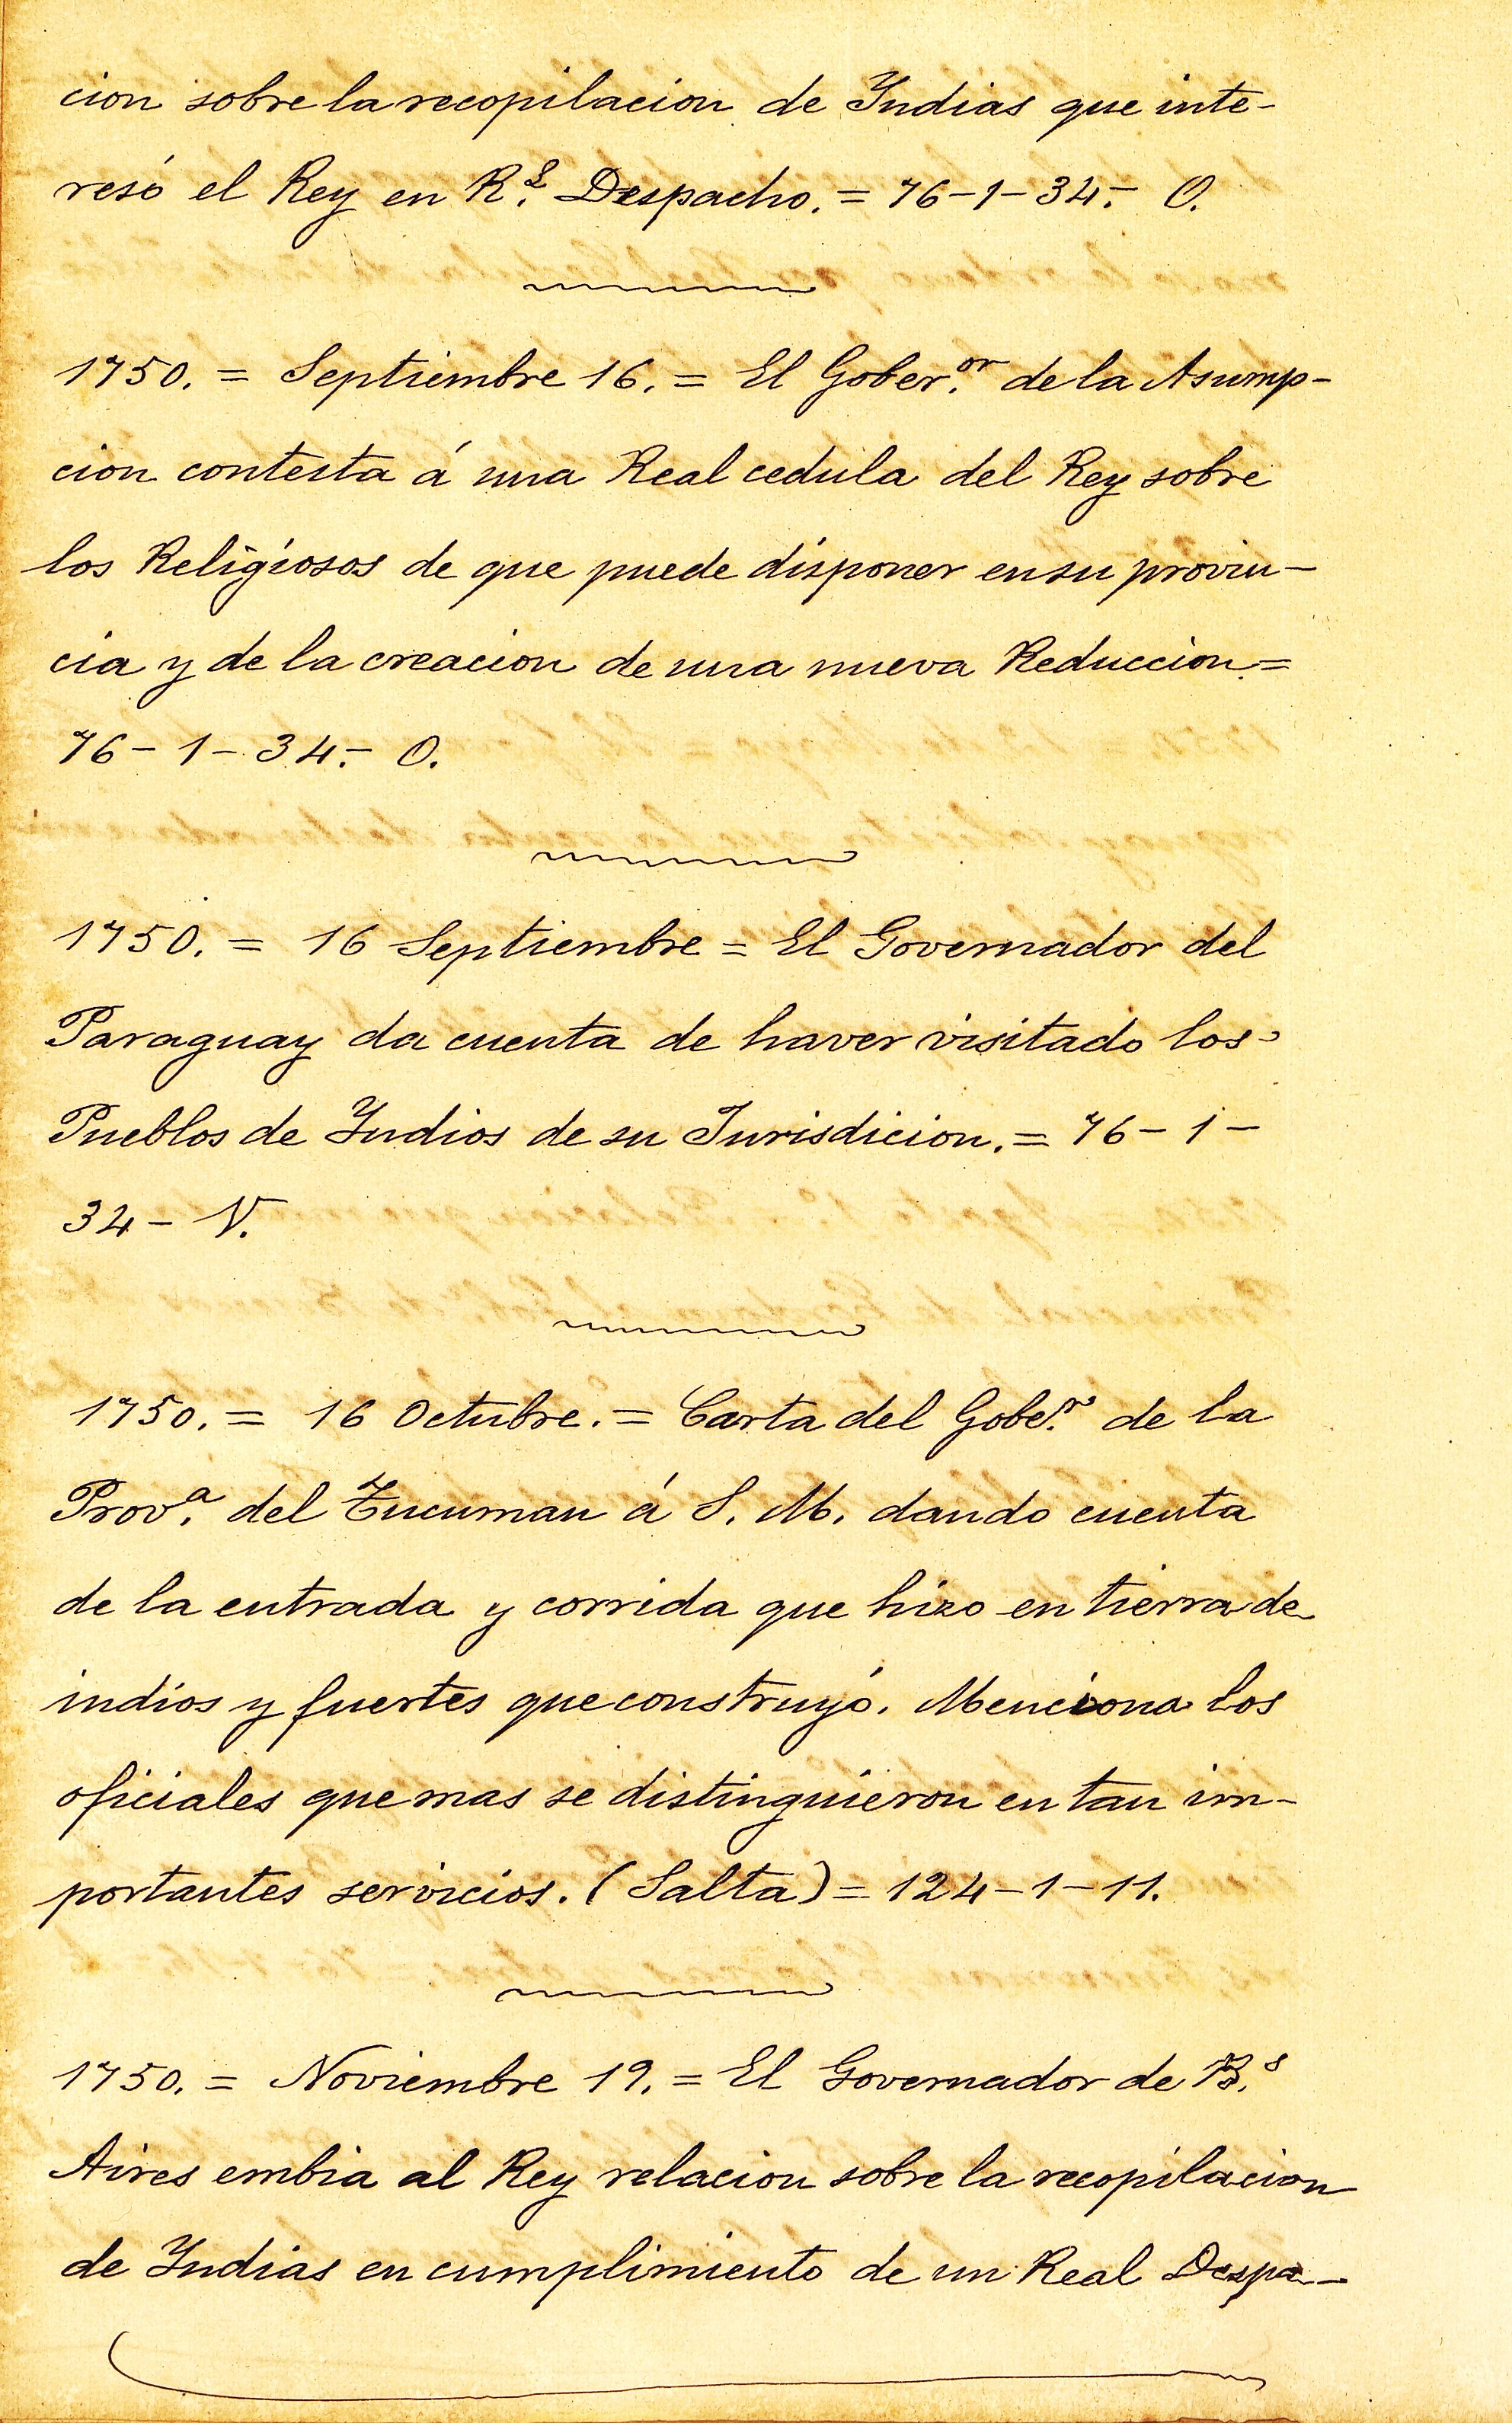 cion sobre la recopilacion de Indias que inte-
resó el Rey en R.l Despacho. = 76-1-34.- O.
1750. = Septiembre 16. = El Gober.or de la Asump-
cion contesta á una Real cedula del Rey sobre
los Religiosos de que puede disponer en su provin-
cia y de la creacion de una nueva Reduccion. =
76-1-34.- O.
1750. = 16 Septiembre = El Governador del
Paraguay da cuenta de haver visitado los
Pueblos de Indios de su Jurisdicion. = 76-1-
34- N.
1750. = 16 Octubre. = Carta del Gobe.r de la
Prov.a del Tucuman á S. M. dando cuenta
de la entrada y corrida que hizo en tierra de
indios y fuertes que construyó. Menciona los
oficiales que mas se distinguieron en tan im-
portantes servicios. (Salta) = 124-1-11.
1750. = Noviembre 19. = El Governador de B.s
Aires embia al Rey relacion sobre la recopilacion
de Indias en cumplimiento de un Real Despa-